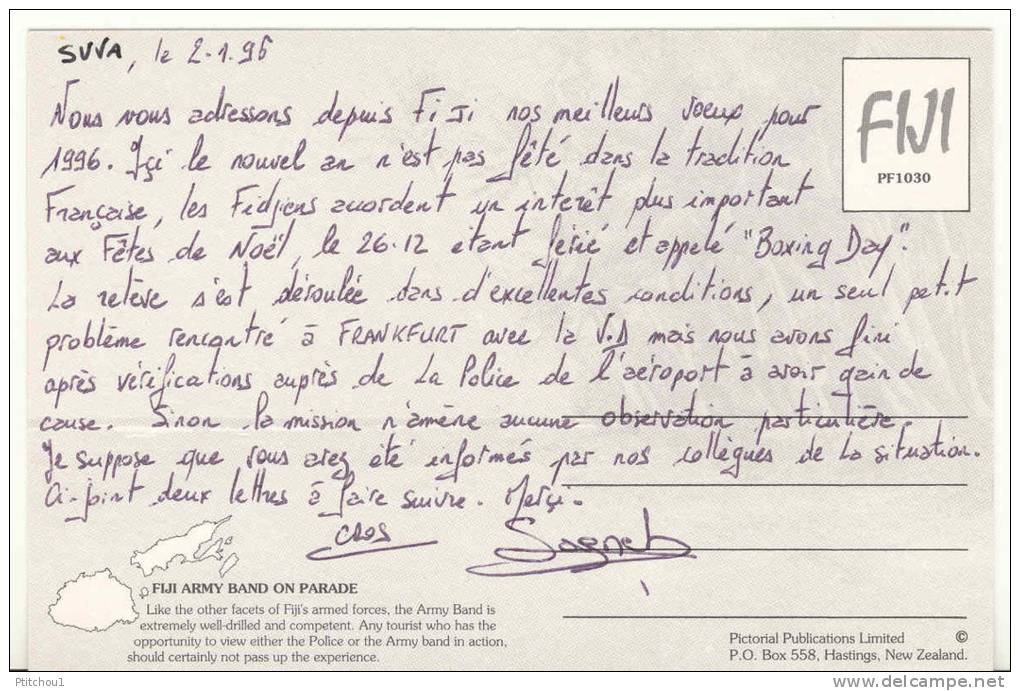 SUVA, le 2-1.96
Nous vous adressons depuis FiJi nos meilleurs voeux pour
1996. Içi le nouvel an n'est pas fêté dans la tradition
Française, les Fidjiens accordent un interêt plus important
aux Fêtes de Noël, le 26.12 étant férié et appelé "Boxing Day".
La relève s'est déroulée dans d'excellentes conditions, un seul petit
problème rencontré à FRANKFURT avec la V.D mais nous avons fini
après vérifications auprès de La Police de l'aéroport à avoir gain de
cause. Sinon la mission n'amène aucune observation particulière.
Je suppose que vous avez été informés par nos collègues de la situation.
Ci-joint deux lettres à faire suivre. Merçi.
CROS
FIJI
PF1030
FIJI ARMY BAND ON PARADE
Like the other facets of Fiji's armed forces, the Army Band is
extremely well-drilled and competent. Any tourist who has the
opportunity to view either the Police or the Army band in action,
should certainly not pass up the experience.
Pictorial Publications Limited ©
P.O. Box 558, Hastings, New Zealand.
Pitchou1
delcampe.net